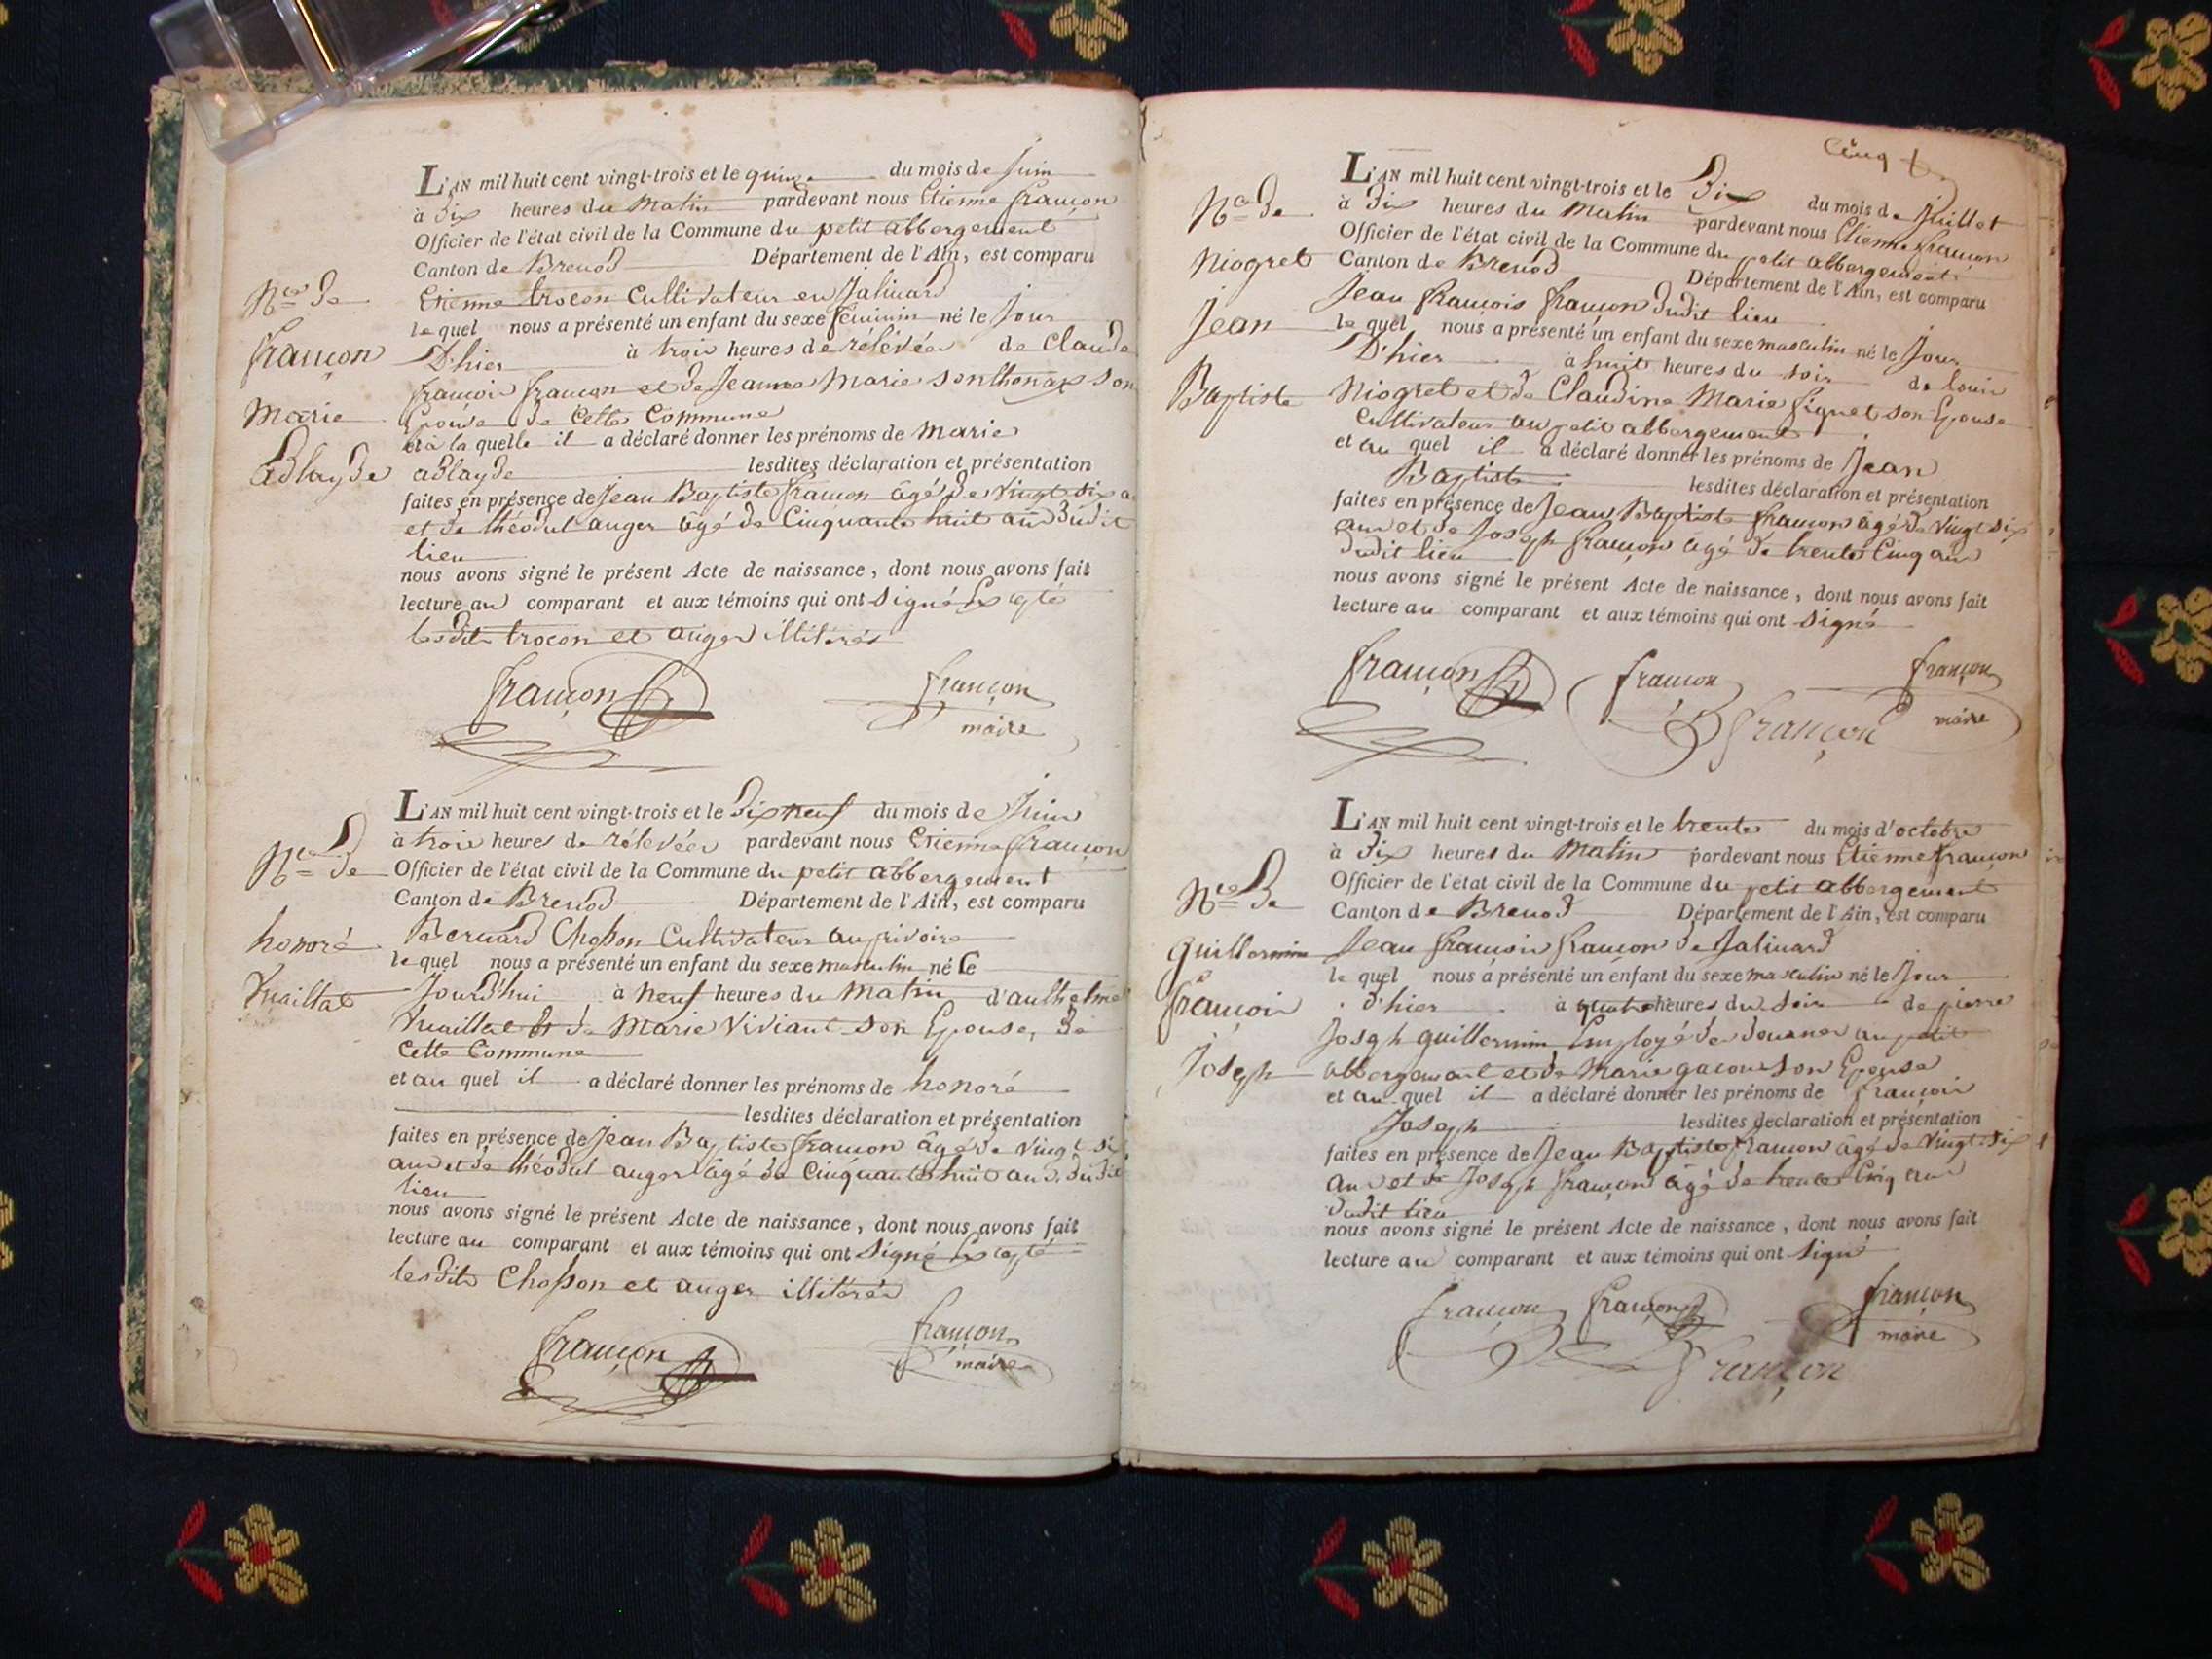 Nce de
françon
Marie
adlayde
L'AN mil huit cent vingt-trois et le quinze du mois de Juin
à dix heures du Matin pardevant nous Etienne françon
Officier de l'état civil de la Commune du petit abbergement
Canton de Brenod Département de l'Ain, est comparu
Etienne trocon Cultivateur en Jalinard
le quel nous a présenté un enfant du sexe féminin né le Jour
D'hier à trois heures de rélévée de Claude
françois françon et de Jeanne Marie sonthonax son
Epouse de Cette Commune
et à la quelle il a déclaré donner les prénoms de Marie
adlayde lesdites déclaration et présentation
faites en présence de Jean Baptiste françon âgé de vingt six a
et de théodul auger âgé de Cinquante huit ans dudit
lieu
nous avons signé le présent Acte de naissance, dont nous avons fait
lecture au comparant et aux témoins qui ont signé Excepté
lesdits trocon et auger illitérés
françon françon
maire
Nce de
honoré
Vuaillat
L'AN mil huit cent vingt-trois et le dix neuf du mois de Juin
à trois heures de rélévée pardevant nous Etienne françon
Officier de l'état civil de la Commune du petit abbergement
Canton de Brenod Département de l'Ain, est comparu
Bernard Chosson Cultivateur au privoire
le quel nous a présenté un enfant du sexe masculin né le
Jourd'hui à neuf heures du Matin d'authelme
Vuaillat et de Marie Viviant son Epouse, de
Cette Commune
et au quel il a déclaré donner les prénoms de honoré
lesdites déclaration et présentation
faites en présence de Jean Baptiste françon âgé de vingt six
ans et de théodul auger âgé de Cinquante huit ans dudit
lieu
nous avons signé le présent Acte de naissance, dont nous avons fait
lecture au comparant et aux témoins qui ont signé Excepté
lesdits Chosson et auger illitérés
françon françon
maire
Cinq
Nce de
Niogret
Jean
Baptiste
L'AN mil huit cent vingt-trois et le Dix du mois de Juillet
à dix heures du Matin pardevant nous Etienne françon
Officier de l'état civil de la Commune du petit abbergement
Canton de Brenod Département de l'Ain, est comparu
Jean françois françon dudit lieu
le quel nous a présenté un enfant du sexe masculin né le Jour
D'hier à huit heures du soir de louis
Niogret et de Claudine Marie Pignet son Epouse
Cultivateur au petit abbergement
et au quel il a déclaré donner les prénoms de Jean
Baptiste lesdites déclaration et présentation
faites en présence de Jean Baptiste françon âgé de vingt six
ans et de Joseph françon âgé de trente Cinq ans
dudit lieu
nous avons signé le présent Acte de naissance, dont nous avons fait
lecture au comparant et aux témoins qui ont signé
françon françon françon
françon maire
Nce de
guillermin
françois
Joseph
L'AN mil huit cent vingt-trois et le trente du mois d'octobre
à dix heures du Matin pardevant nous Etienne françon
Officier de l'état civil de la Commune du petit abbergement
Canton de Brenod Département de l'Ain, est comparu
Jean françois françon de Jalinard
le quel nous a présenté un enfant du sexe masculin né le Jour
d'hier à quatre heures du soir de pierre
Joseph guillermin Employé des douanes au petit
abbergement et de Marie gacon son Epouse
et au quel il a déclaré donner les prénoms de françois
Joseph lesdites declaration et présentation
faites en présence de Jean Baptiste françon âgé de vingt six
ans et de Joseph françon âgé de trente Cinq ans
dudit lieu
nous avons signé le présent Acte de naissance, dont nous avons fait
lecture au comparant et aux témoins qui ont signé
françon françon françon
maire
françon